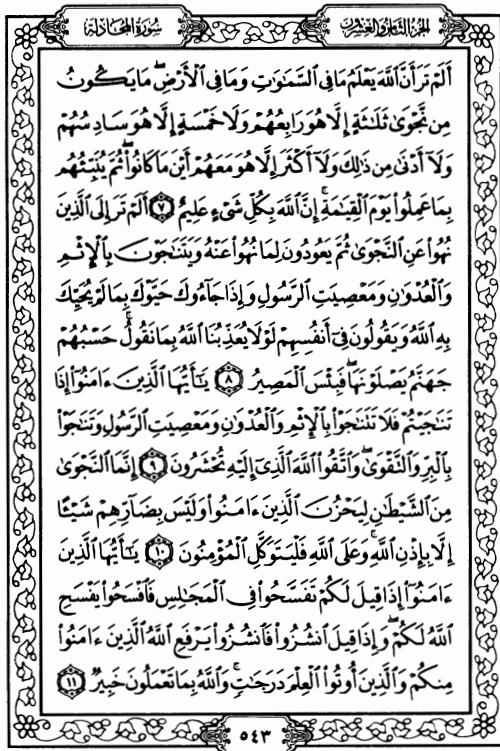 سُورَةُ المُجَادلَةِ
الجُزءُ الثَّامِنُ وَالعِشْرُونَ
أَلَمْ تَرَ أَنَّ ٱللَّهَ يَعْلَمُ مَا فِي ٱلسَّمَـٰوَٰتِ وَمَا فِي ٱلْأَرْضِۖ مَا يَكُونُ
مِن نَّجْوَىٰ ثَلَـٰثَةٍ إِلَّا هُوَ رَابِعُهُمْ وَلَا خَمْسَةٍ إِلَّا هُوَ سَادِسُهُمْ
وَلَآ أَدْنَىٰ مِن ذَٰلِكَ وَلَآ أَكْثَرَ إِلَّا هُوَ مَعَهُمْ أَيْنَ مَا كَانُوا۟ۖ ثُمَّ يُنَبِّئُهُم
بِمَا عَمِلُوا۟ يَوْمَ ٱلْقِيَـٰمَةِۚ إِنَّ ٱللَّهَ بِكُلِّ شَىْءٍ عَلِيمٌ ٧ أَلَمْ تَرَ إِلَى ٱلَّذِينَ
نُهُوا۟ عَنِ ٱلنَّجْوَىٰ ثُمَّ يَعُودُونَ لِمَا نُهُوا۟ عَنْهُ وَيَتَنَـٰجَوْنَ بِٱلْإِثْمِ
وَٱلْعُدْوَٰنِ وَمَعْصِيَتِ ٱلرَّسُولِ وَإِذَا جَآءُوكَ حَيَّوْكَ بِمَا لَمْ يُحَيِّكَ
بِهِ ٱللَّهُ وَيَقُولُونَ فِىٓ أَنفُسِهِمْ لَوْلَا يُعَذِّبُنَا ٱللَّهُ بِمَا نَقُولُۚ حَسْبُهُمْ
جَهَنَّمُ يَصْلَوْنَهَاۖ فَبِئْسَ ٱلْمَصِيرُ ٨ يَـٰٓأَيُّهَا ٱلَّذِينَ ءَامَنُوٓا۟ إِذَا
تَنَـٰجَيْتُمْ فَلَا تَتَنَـٰجَوْا۟ بِٱلْإِثْمِ وَٱلْعُدْوَٰنِ وَمَعْصِيَتِ ٱلرَّسُولِ وَتَنَـٰجَوْا۟
بِٱلْبِرِّ وَٱلتَّقْوَىٰۖ وَٱتَّقُوا۟ ٱللَّهَ ٱلَّذِىٓ إِلَيْهِ تُحْشَرُونَ ٩ إِنَّمَا ٱلنَّجْوَىٰ
مِنَ ٱلشَّيْطَـٰنِ لِيَحْزُنَ ٱلَّذِينَ ءَامَنُوا۟ وَلَيْسَ بِضَآرِّهِمْ شَيْـًٔا
إِلَّا بِإِذْنِ ٱللَّهِۚ وَعَلَى ٱللَّهِ فَلْيَتَوَكَّلِ ٱلْمُؤْمِنُونَ ١٠ يَـٰٓأَيُّهَا ٱلَّذِينَ
ءَامَنُوٓا۟ إِذَا قِيلَ لَكُمْ تَفَسَّحُوا۟ فِى ٱلْمَجَـٰلِسِ فَٱفْسَحُوا۟ يَفْسَحِ
ٱللَّهُ لَكُمْۖ وَإِذَا قِيلَ ٱنشُزُوا۟ فَٱنشُزُوا۟ يَرْفَعِ ٱللَّهُ ٱلَّذِينَ ءَامَنُوا۟
مِنكُمْ وَٱلَّذِينَ أُوتُوا۟ ٱلْعِلْمَ دَرَجَـٰتٍۚ وَٱللَّهُ بِمَا تَعْمَلُونَ خَبِيرٌ ١١
٥٤٣